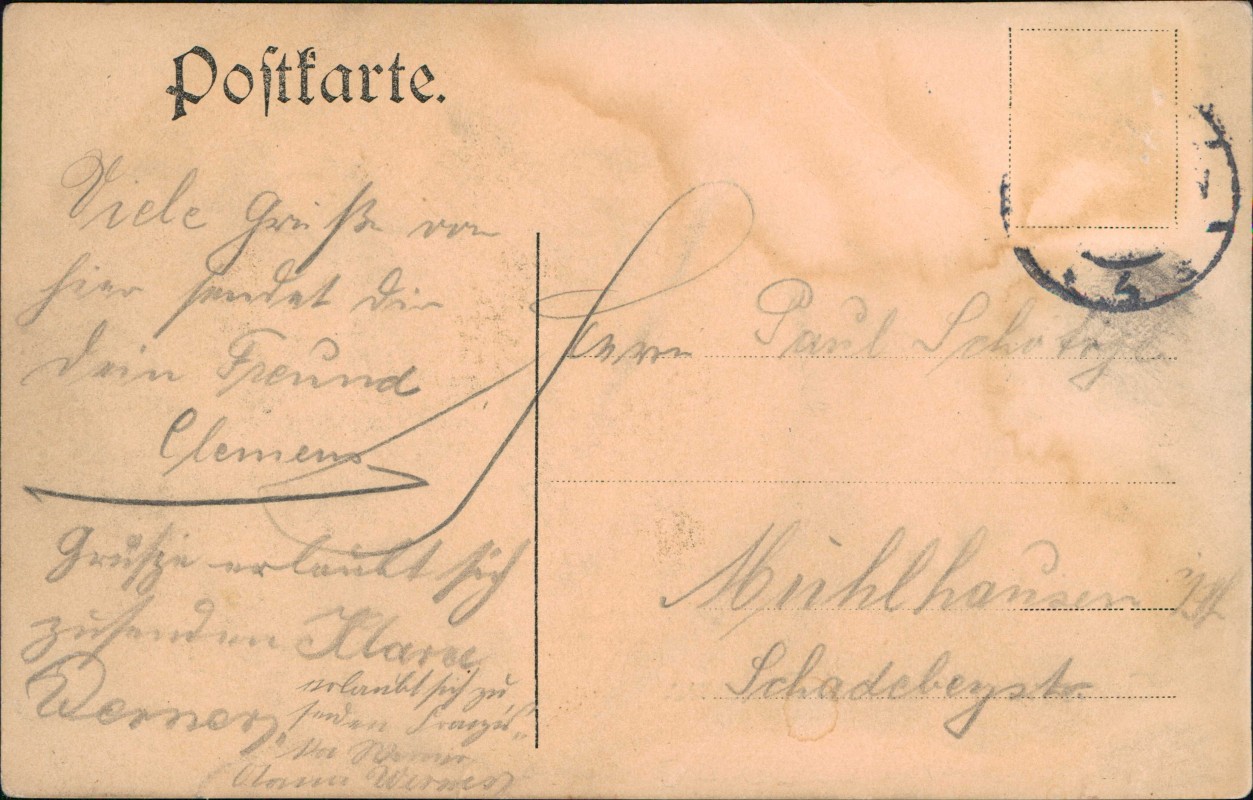 Postkarte.
Viele Grüße von
hier sendet Dir
Dein Freund
Clemens
Grüße erlaubt sich
zusenden Klara
Werner,
erlaubt sich zu
senden
Werner
Herrn Paul
Mühlhausen i/Th
Schadebergstr.